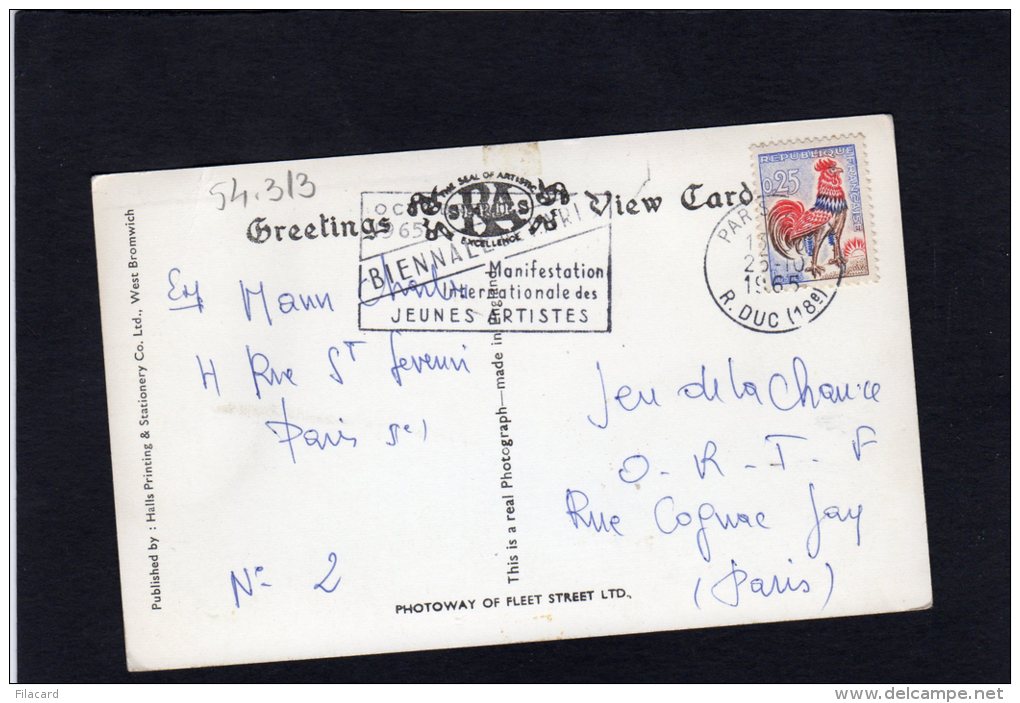 54.313
Greetings
View Card
THE SEAL OF ARTISTIC
RA
EXCELLENCE
OCT
1965
BIENNALE
Manifestation
Internationale des
JEUNES ARTISTES
REPUBLIQUE
FRANÇAISE
0,25
PARIS
25-10
1965
R. DUC (18e)
Exp Mann Charles
4 Rue St Severin
Paris 5e
N° 2
Jeu de la Chance
O - R - T - F
Rue Cognac Jay
(Paris)
Published by : Halls Printing & Stationery Co. Ltd., West Bromwich
This is a real Photograph—made in England
PHOTOWAY OF FLEET STREET LTD.,
Filacard
delcampe.net